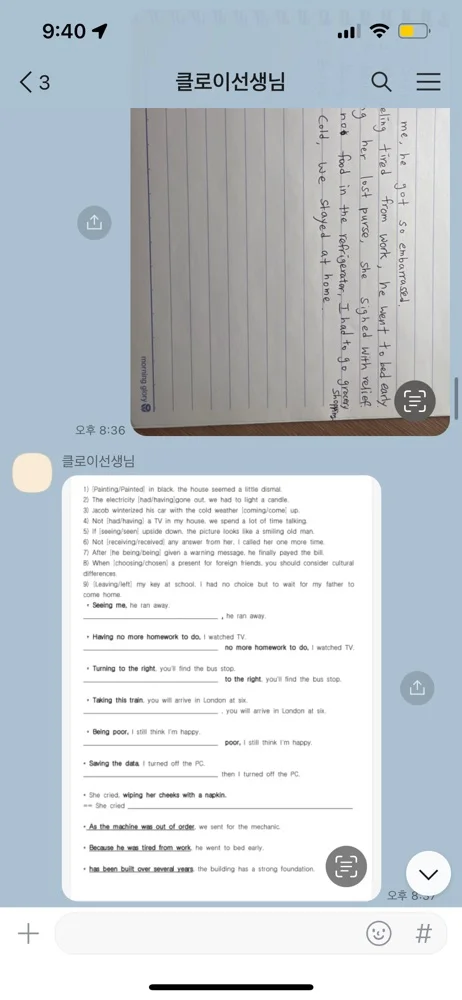 9:40
3
클로이선생님
me, he got so embarrassed.
eling tired from work, he went to bed early
g her lost purse, she sighed with relief.
not food in the refrigerator, I had to go grocery
shopping
Cold, we stayed at home.
morning glory
오후 8:36
클로이선생님
1) [Painting/Painted] in black, the house seemed a little dismal.
2) The electricity [had/having]gone out, we had to light a candle.
3) Jacob winterized his car with the cold weather [coming/come] up.
4) Not [had/having] a TV in my house, we spend a lot of time talking.
5) If [seeing/seen] upside down, the picture looks like a smiling old man.
6) Not [receiving/received] any answer from her, I called her one more time.
7) After [he being/being] given a warning message, he finally payed the bill.
8) When [choosing/chosen] a present for foreign friends, you should consider cultural
differences.
9) [Leaving/left] my key at school, I had no choice but to wait for my father to
come home.
• Seeing me, he ran away.
, he ran away.
• Having no more homework to do, I watched TV.
no more homework to do, I watched TV.
• Turning to the right, you'll find the bus stop.
to the right, you'll find the bus stop.
• Taking this train, you will arrive in London at six.
, you will arrive in London at six.
• Being poor, I still think I'm happy.
poor, I still think I'm happy.
• Saving the data, I turned off the PC.
then I turned off the PC.
• She cried, wiping her cheeks with a napkin.
== She cried
• As the machine was out of order, we sent for the mechanic.
• Because he was tired from work, he went to bed early.
• has been built over several years, the building has a strong foundation.
오후 8:37
#